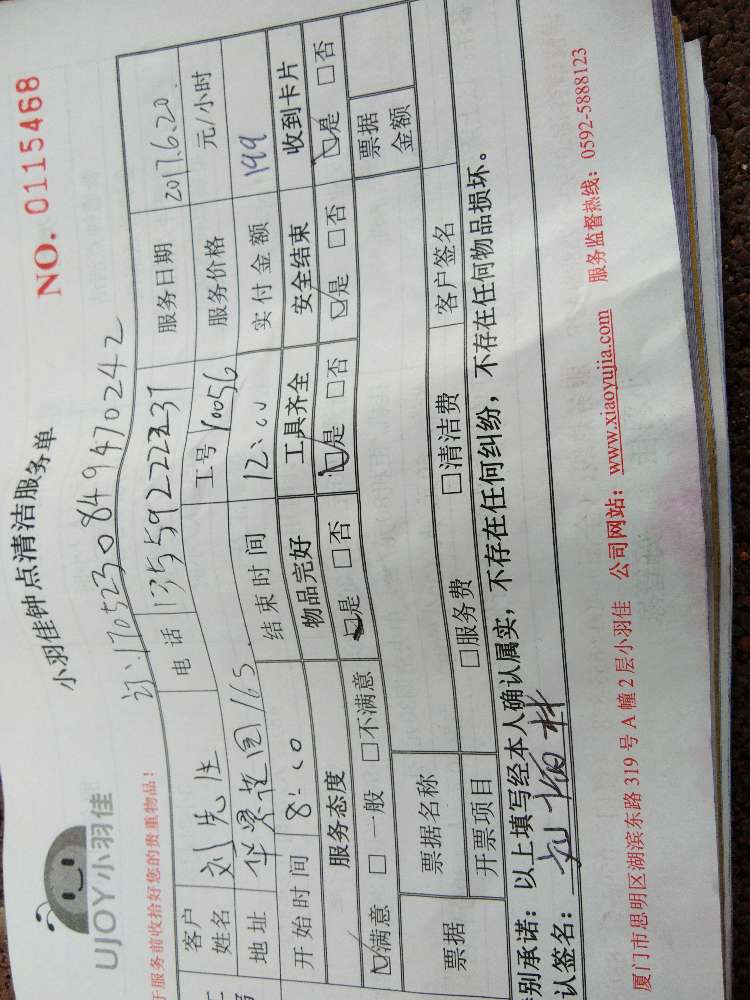 小羽佳钟点清洁服务单
NO. 0115468
UJOY小羽佳
于服务前收拾好您的贵重物品!
订:1705230849470242
客户姓名 刘先生 电话 服务日期 2017.6.20
地址 165 工号 10056 服务价格 元/小时
开始时间 8:00 结束时间 12:00 实付金额 199
服务态度 物品完好 工具齐全 安全结束 收到卡片
☑满意 □一般 □不满意 ☑是 □否 ☑是 □否 ☑是 □否 ☑是 □否
票据 票据名称 票据金额
开票项目 □服务费 □清洁费 客户签名
别承诺:以上填写经本人确认属实,不存在任何纠纷,不存在任何物品损坏。
认签名:
厦门市思明区湖滨东路 319 号 A 幢 2 层小羽佳 公司网站:www.xiaoyujia.com 服务监督热线:0592-5888123